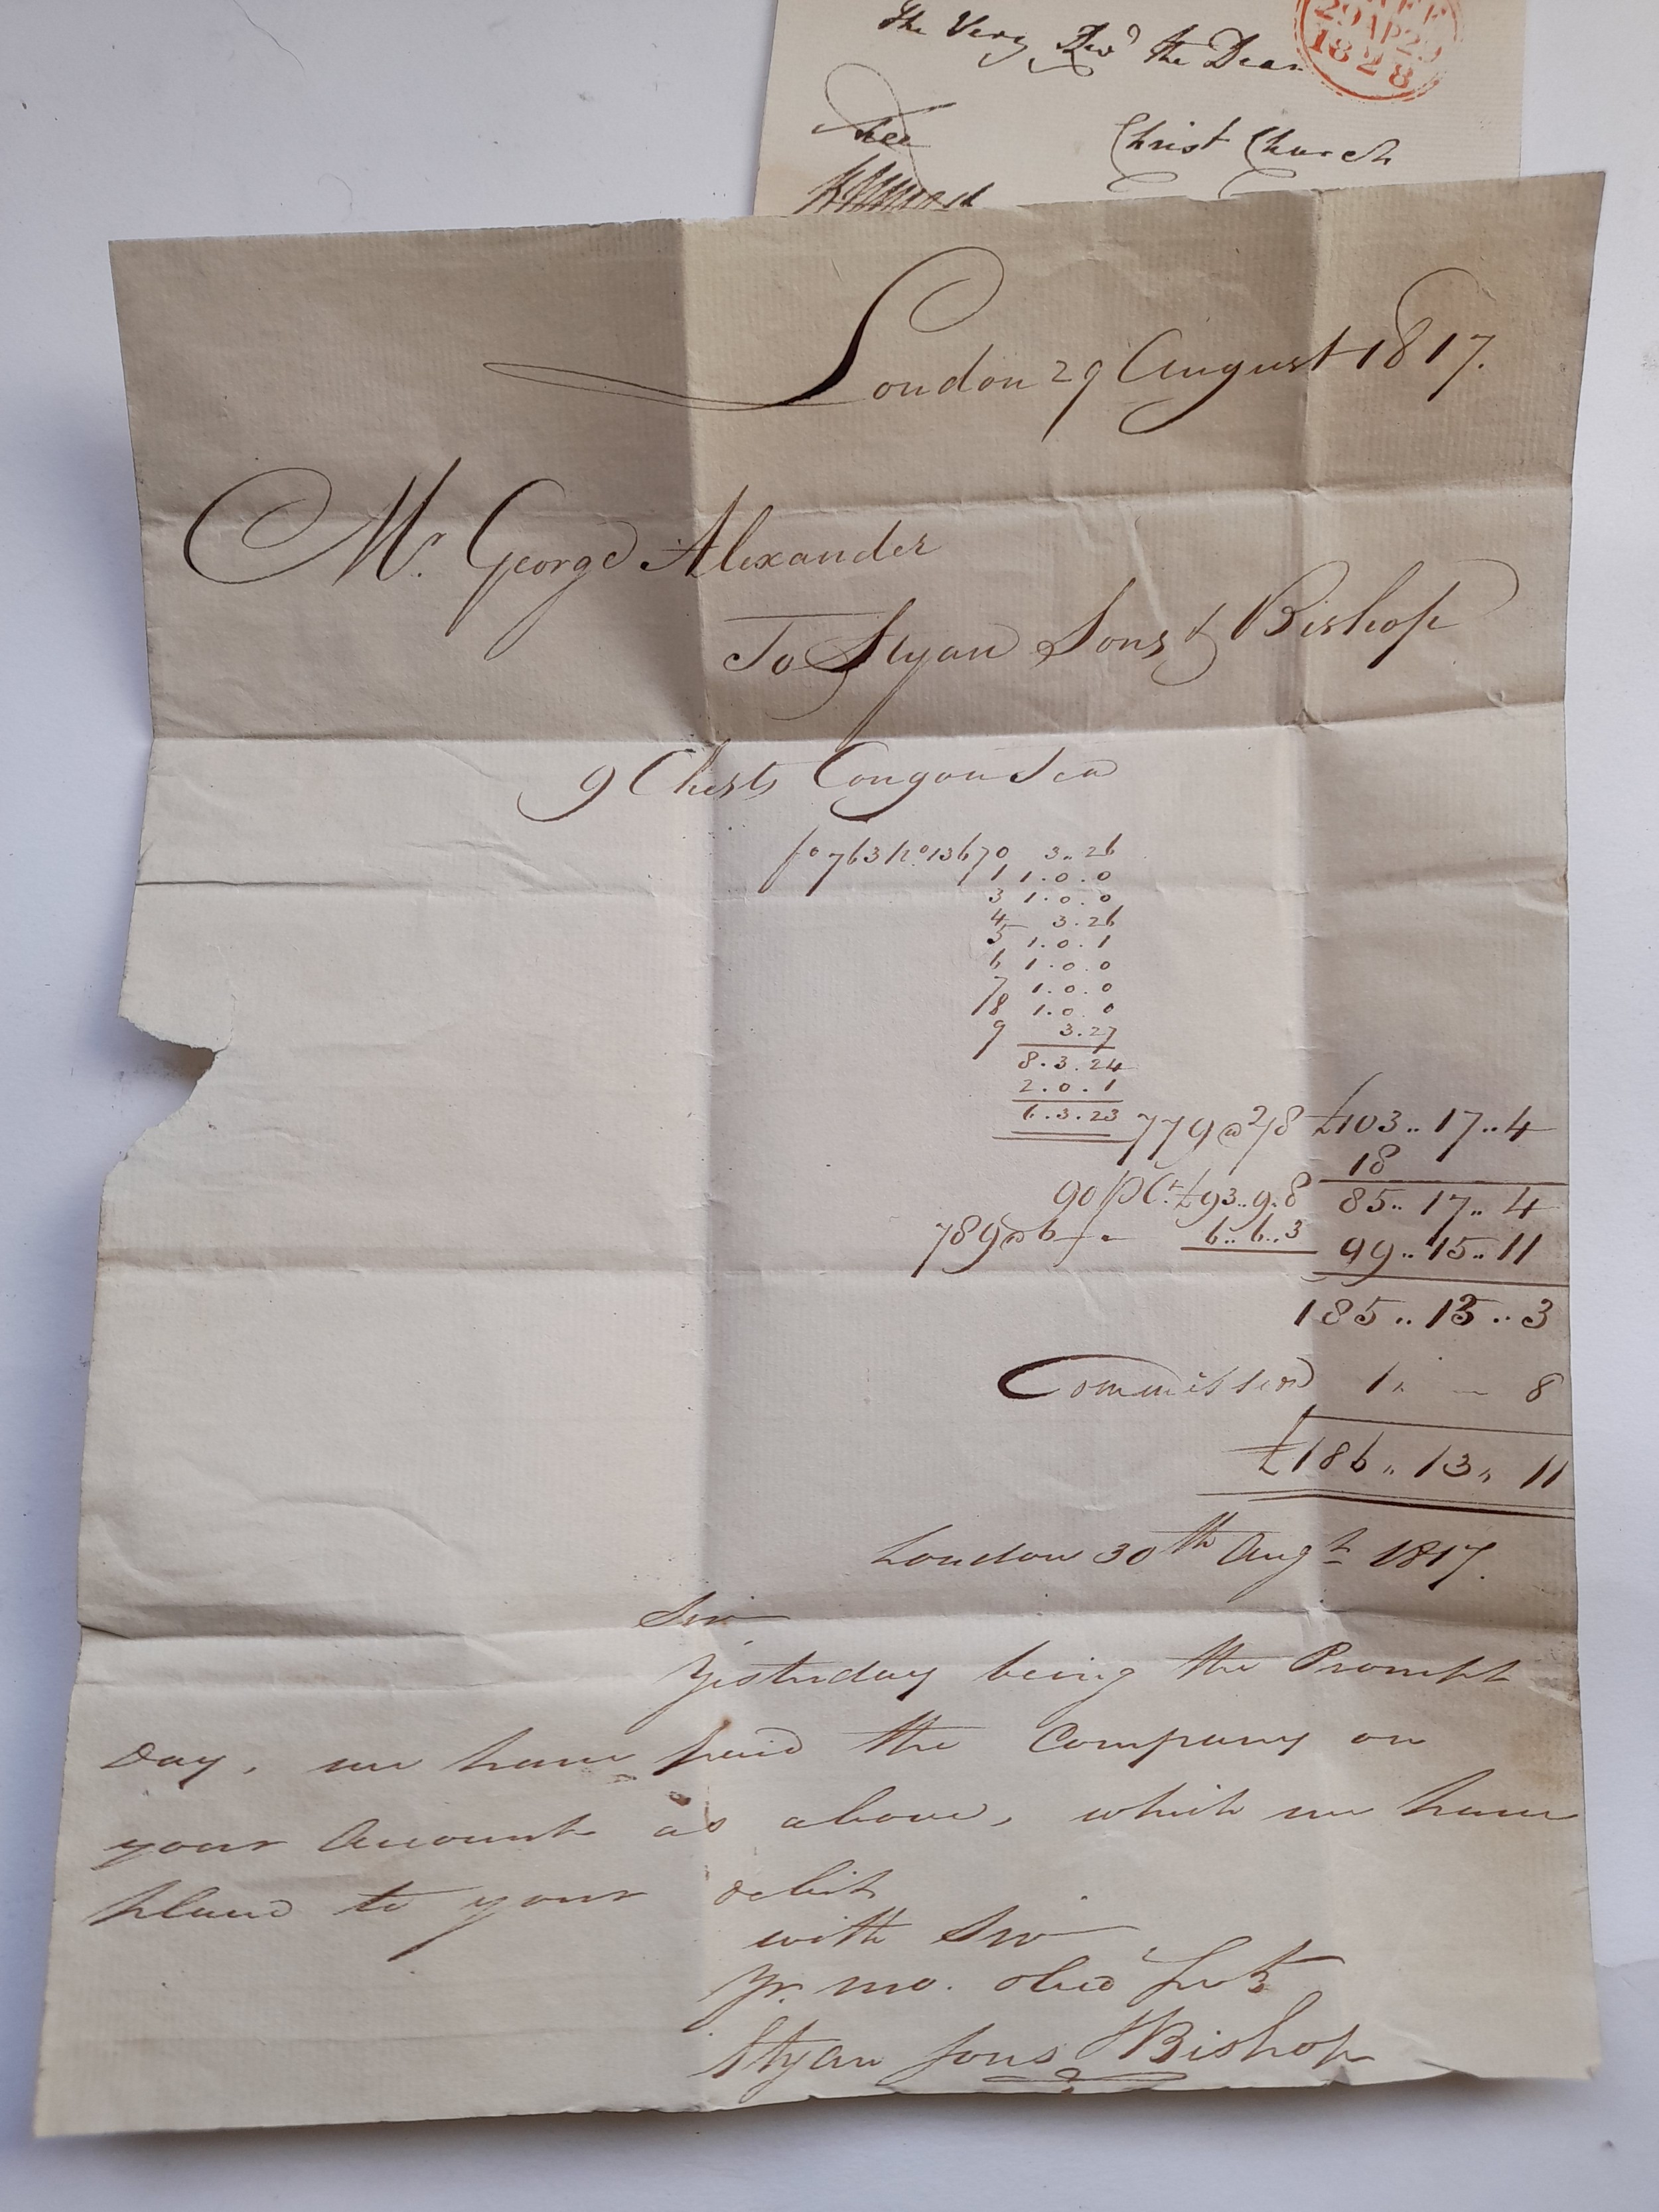 The Very Revd the Dean
29 AP 29
1828
Free
Christ Church
London 29 August 1817.
Mr. George Alexander
To Styan Sons & Bishop
9 Chests Congou Tea
fo 763 No 13670 3..26
/1 1.0.0
3 1.0.0
4 3.26
5 1.0.1
6 1.0.0
7 1.0.0
18 1.0.0
9 3.27
8.3.24
2.0.1
6.3.23 779@2/8 £103..17..4
18
90 P Ct. £93..9.8 85..17..4
789@ 6..6..3 99..15..11
185..13..3
Commission 1" — 8
£186"13"11
London 30th Augt 1817.
Sir
Yesterday being the Prompt
Day, we have paid the Company on
your Account as above, which we have
placed to your debit
with Sir
Yr. mo. obed Svts
Styan Sons & Bishop